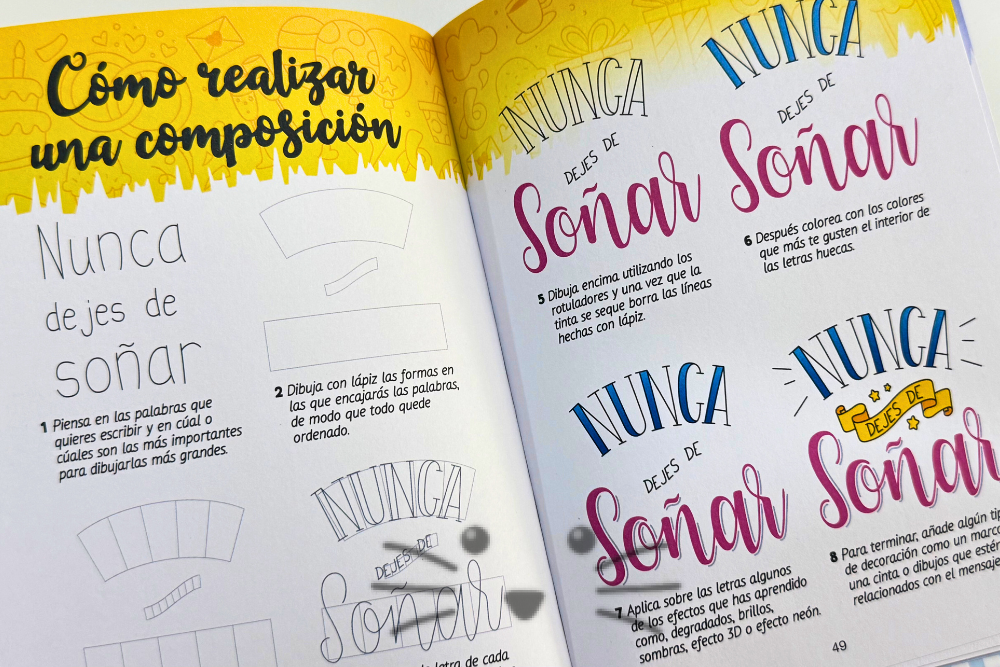 Cómo realizar
una composición
Nunca
dejes de
soñar
1 Piensa en las palabras que
quieres escribir y en cúal o
cúales son las más importantes
para dibujarlas más grandes.
2 Dibuja con lápiz las formas en
las que encajarás las palabras,
de modo que todo quede
ordenado.
NUNCA
DEJES DE
Soñar
letra de cada
NUNCA
DEJES DE
Soñar
5 Dibuja encima utilizando los
rotuladores y una vez que la
tinta se seque borra las líneas
hechas con lápiz.
NUNCA
DEJES DE
Soñar
6 Después colorea con los colores
que más te gusten el interior de
las letras huecas.
NUNCA
DEJES DE
Soñar
7 Aplica sobre las letras algunos
de los efectos que has aprendido
como, degradados, brillos,
sombras, efecto 3D o efecto neón.
NUNCA
DEJES DE
Soñar
8 Para terminar, añade algún
de decoración como un marco
una cinta o dibujos que
relacionados con el
49